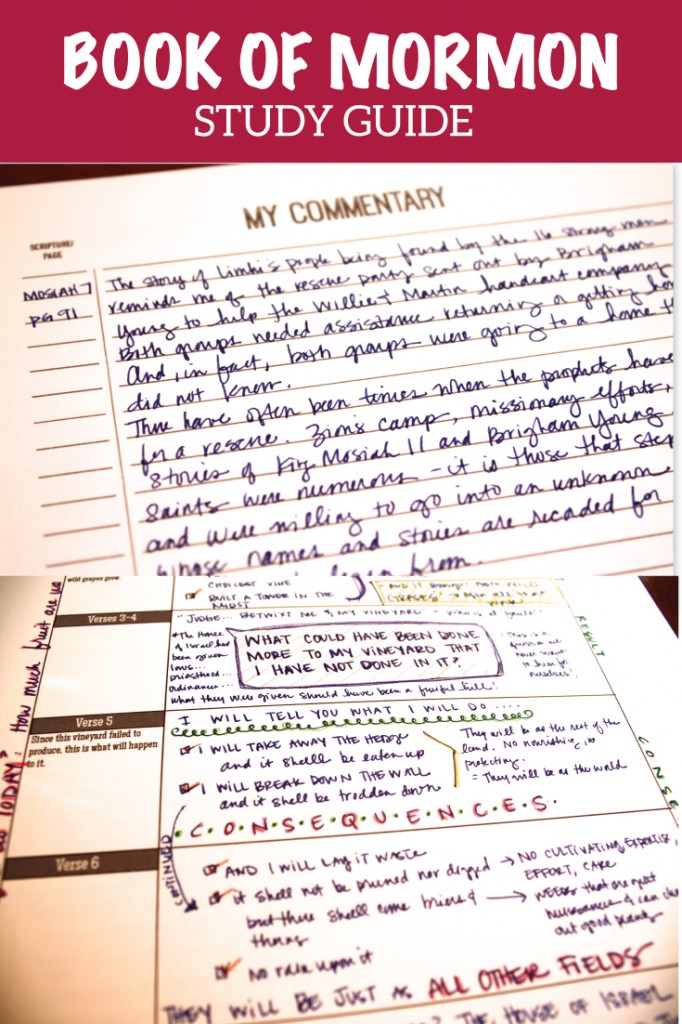 BOOK OF MORMON
STUDY GUIDE
MY COMMENTARY
SCRIPTURE/
PAGE
MOSIAH 7
PG 91
The story of Limhi's people being found by the 16 strong men
reminds me of the rescue party sent out by Brigham
Young to help the Willie & Martin handcart company
Both groups needed assistance returning or getting
And, in fact, both groups were going to a home
did not know.
There have often been times when the prophets have
for a rescue. Zion's camp, missionary efforts,
stories of King Mosiah II and Brigham Young
saints were numerous - it is those that step
and were willing to go into an unknown
whose names and stories are recorded for
from.
wild grapes grew.
CHOICEST VINE
BUILT A TOWER IN THE
MIDST
Verses 3-4
"JUDGE... BETWIXT ME & MY VINEYARD"
The House
of Israel had
been given
laws...
priesthood...
ordinances...
what they were given should have been a fruitful hill!
WHAT COULD HAVE BEEN DONE
MORE TO MY VINEYARD THAT
I HAVE NOT DONE IN IT?
This is a
question we
never want
to have for
ourselves!
RESULT
How much fruit are we
TODAY?
Verse 5
Since this vineyard failed to
produce, this is what will happen
to it.
I WILL TELL YOU WHAT I WILL DO....
I WILL TAKE AWAY THE HEDGE
and it shall be eaten up
I WILL BREAK DOWN THE WALL
and it shall be trodden down
They will be as the rest of the
land. No nourishing in
protecting.
= They will be as the world
C.O.N.S.E.Q.U.E.N.C.E.S.
CONSE
CONTINUED
Verse 6
AND I WILL LAY IT WASTE
it shall not be pruned nor digged → NO CULTIVATING, EXPERTISE,
EFFORT, CARE
but there shall come briers & → WEEDS that are just
thorns
nuisances & can
out good plants
No rain upon it
THEY WILL BE JUST AS ALL OTHER FIELDS
THE HOUSE OF ISRAEL